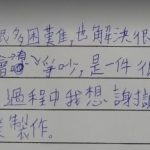 很多困難,也解決很
、爭吵,是一件很
過程中我想謝謝
製作。